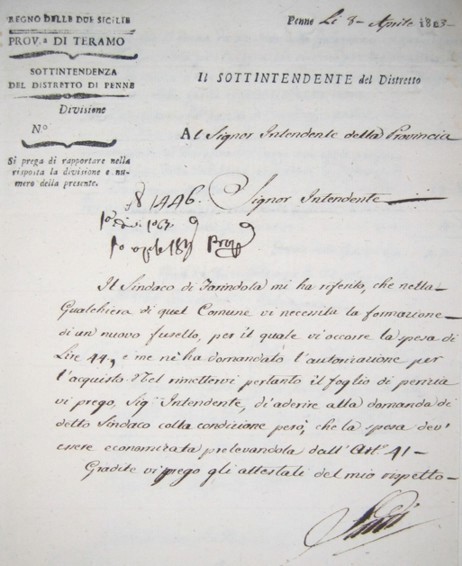 REGNO DELLE DUE SICILIE
PROV.ª DI TERAMO
SOTTINTENDENZA
DEL DISTRETTO DI PENNE
Divisione
N°
Si prega di rapportare nella
risposta la divisione e nu-
mero della presente.
Penne Li 8 Aprile 1823
IL SOTTINTENDENTE del Distretto
Al Signor Intendente della Provincia
1446.
Signor Intendente
Il Sindaco di Farindola mi ha riferito, che nella
Gualchiera di quel Comune vi necessita la formazione
di un nuovo fusello, per il quale vi occorre la spesa di
Lire 44, e me ne ha domandato l'autorizazione per
l'acquisto. Nel rimettervi pertanto il foglio di perizia
vi prego, Sig.r Intendente, di aderire alla domanda di
detto Sindaco colla condizione però, che la spesa dev'
essere economizata prelevandola dall'Art.° 41-
Gradite vi prego gli attestati del mio rispetto-